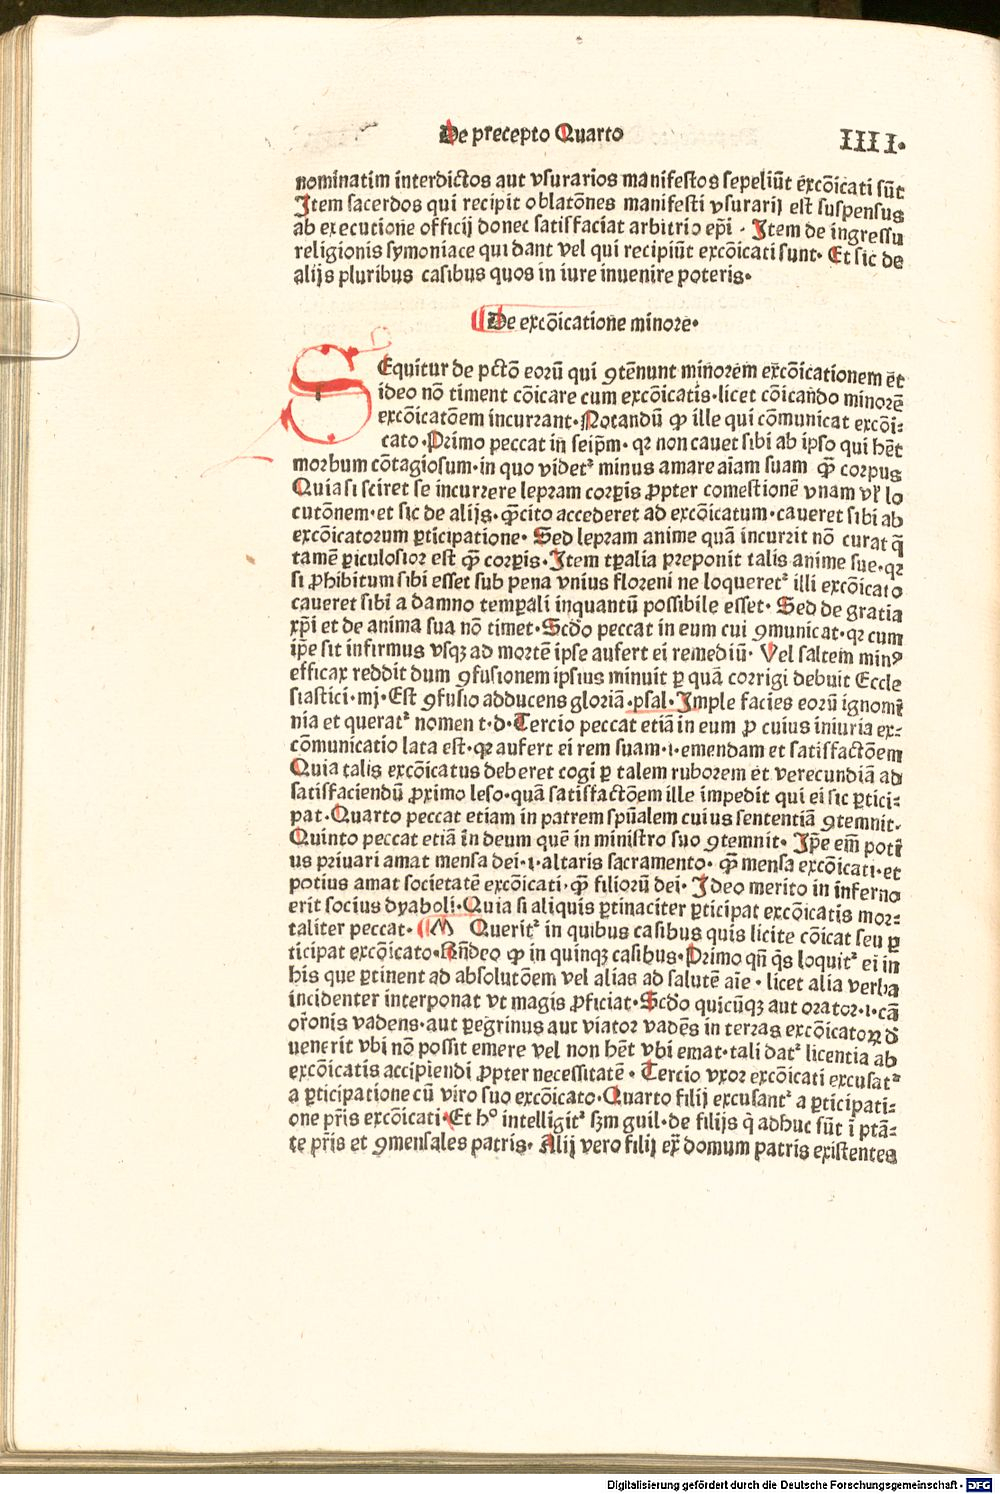 De precepto Quarto
IIII.
nominatim interdictos aut vsurarios manifestos sepeliūt excōicati sūt
Item sacerdos qui recipit oblatōnes manifesti vsurarij est suspensus
ab executione officij donec satisfaciat arbitrio ep̄i · Item de ingressu
religionis symoniace qui dant vel qui recipiūt excōicati sunt· Et sic de
alijs pluribus casibus quos in iure inuenire poteris·
De excōicatione minore·
SEquitur de pctō eorū qui ꝯtēnunt minorem excōicationem et̄
ideo nō timent cōicare cum excōicatis·licet cōicando minorē
excōicatōem incurrant·Notandū ꝙ ille qui cōmunicat excōi⸗
cato·Primo peccat in seip̄m·qꝛ non cauet sibi ab ipso qui hēt
morbum cōtagiosum·in quo videtᷣ minus amare aīam suam q̄ꝫ corpus
Quia si sciret se incurrere lepram corꝑis ꝓpter comestionē vnam vl̓ lo
cutōnem·et sic de alijs·q̄ꝫcito accederet ad excōicatum·caueret sibi ab
excōicatorum ꝑticipatione· Sed lepram anime quā incurrit nō curat q̄
tamē ꝑiculosior est q̄ꝫ corꝑis·Item tꝑalia preponit talis anime sue·qꝛ
si ꝓhibitum sibi esset sub pena vnius floreni ne loqueretᷣ illi excōicato
caueret sibi a damno temꝑali inquantū possibile esset· Sed de gratia
xp̄i et de anima sua nō timet·Scd̄o peccat in eum cui ꝯmunicat·qꝛ cum
ip̄e sit infirmus vsqꝫ ad mortē ipse aufert ei remediū· Vel saltem minꝰ
efficax reddit dum ꝯfusionem ipsius minuit ꝑ quā corrigi debuit Eccle
siastici·iiij·Est ꝯfusio adducens gloriā·psal·Imple facies eorū ignomī
nia et queratᷣ nomen t·d·Tercio peccat etiā in eum ꝓ cuius iniuria ex⸗
cōmunicatio lata est·qꝛ aufert ei rem suam·i·emendam et satisfactōem
Quia talis excōicatus deberet cogi ꝑ talem ruborem et verecundiā ad
satisfaciendū ꝓximo leso·quā satisfactōem ille impedit qui ei sic ꝑtici⸗
pat·Quarto peccat etiam in patrem spūalem cuius sententiā ꝯtemnit·
Quinto peccat etiā in deum quē in ministro suo ꝯtemnit· Ip̄e em̄ potī
us priuari amat mensa dei·i·altaris sacramento· q̄ꝫ mensa excōicati·et
potius amat societatē excōicati·q̄ꝫ filiorū dei· Ideo merito in inferno
erit socius dyaboli·Quia si aliquis ꝑtinaciter ꝑticipat excōicatis mor⸗
taliter peccat· M Queritᷣ in quibus casibus quis licite cōicat seu ꝑ
ticipat excōicato·Rn̄deo ꝙ in quinqꝫ casibus·Primo qn̄ q̇s loquitᷣ ei in
his que ꝑtinent ad absolutōem vel alias ad salutē aīe · licet alia verba
incidenter interponat vt magis ꝓficiat·Scd̄o quicūqꝫ aut orator·i·cā
or̄onis vadens·aut ꝑegrinus aut viator vadēs in terras excōicatoꝝ d̄
uenerit vbi nō possit emere vel non hēt vbi emat·tali datᷣ licentia ab
excōicatis accipiendi ꝓpter necessitatē · Tercio vxor excōicati excusatᷣ
a ꝑticipatione cū viro suo excōicato·Quarto filij excusantᷣ a ꝑticipati⸗
one pr̄is excōicati·Et hᵒ intelligitᷣ scd̄m guil·de filijs q̇ adhuc sūt ī ptā⸗
te pr̄is et ꝯmensales patris· Alij vero filij ex̄ domum patris existentes
Digitalisierung gefördert durch die Deutsche Forschungsgemeinschaft · DFG